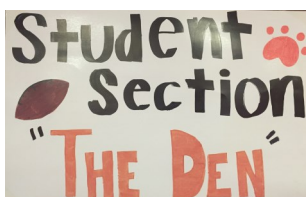 Student
Section
"THE DEN"